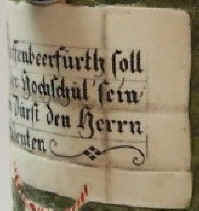 ffenbeerfürth soll
Hochschul sein
Durst den Herrn
denten